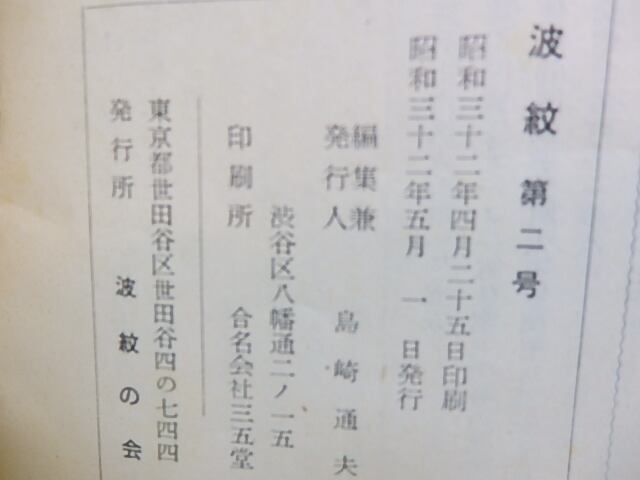 波紋 第二号
昭和三十二年四月二十五日印刷
昭和三十二年五月 一 日発行
編集兼
発行人 島崎通夫
渋谷区八幡通二ノ一五
印刷所 合名会社三五堂
東京都世田谷区世田谷四の七四四
発行所 波紋の会